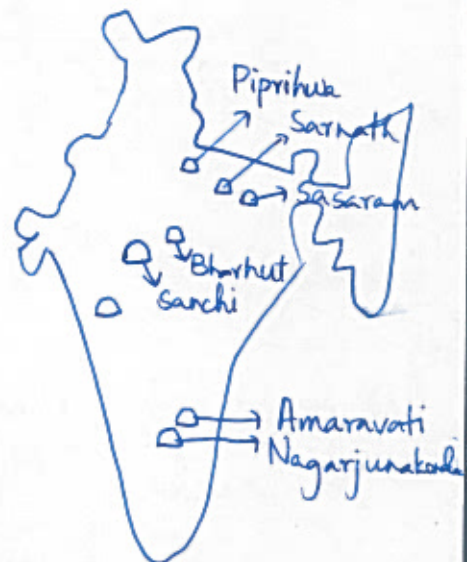 Piprihwa
Sarnath
Sasaram
Bharhut
Sanchi
Amaravati
Nagarjunakonda